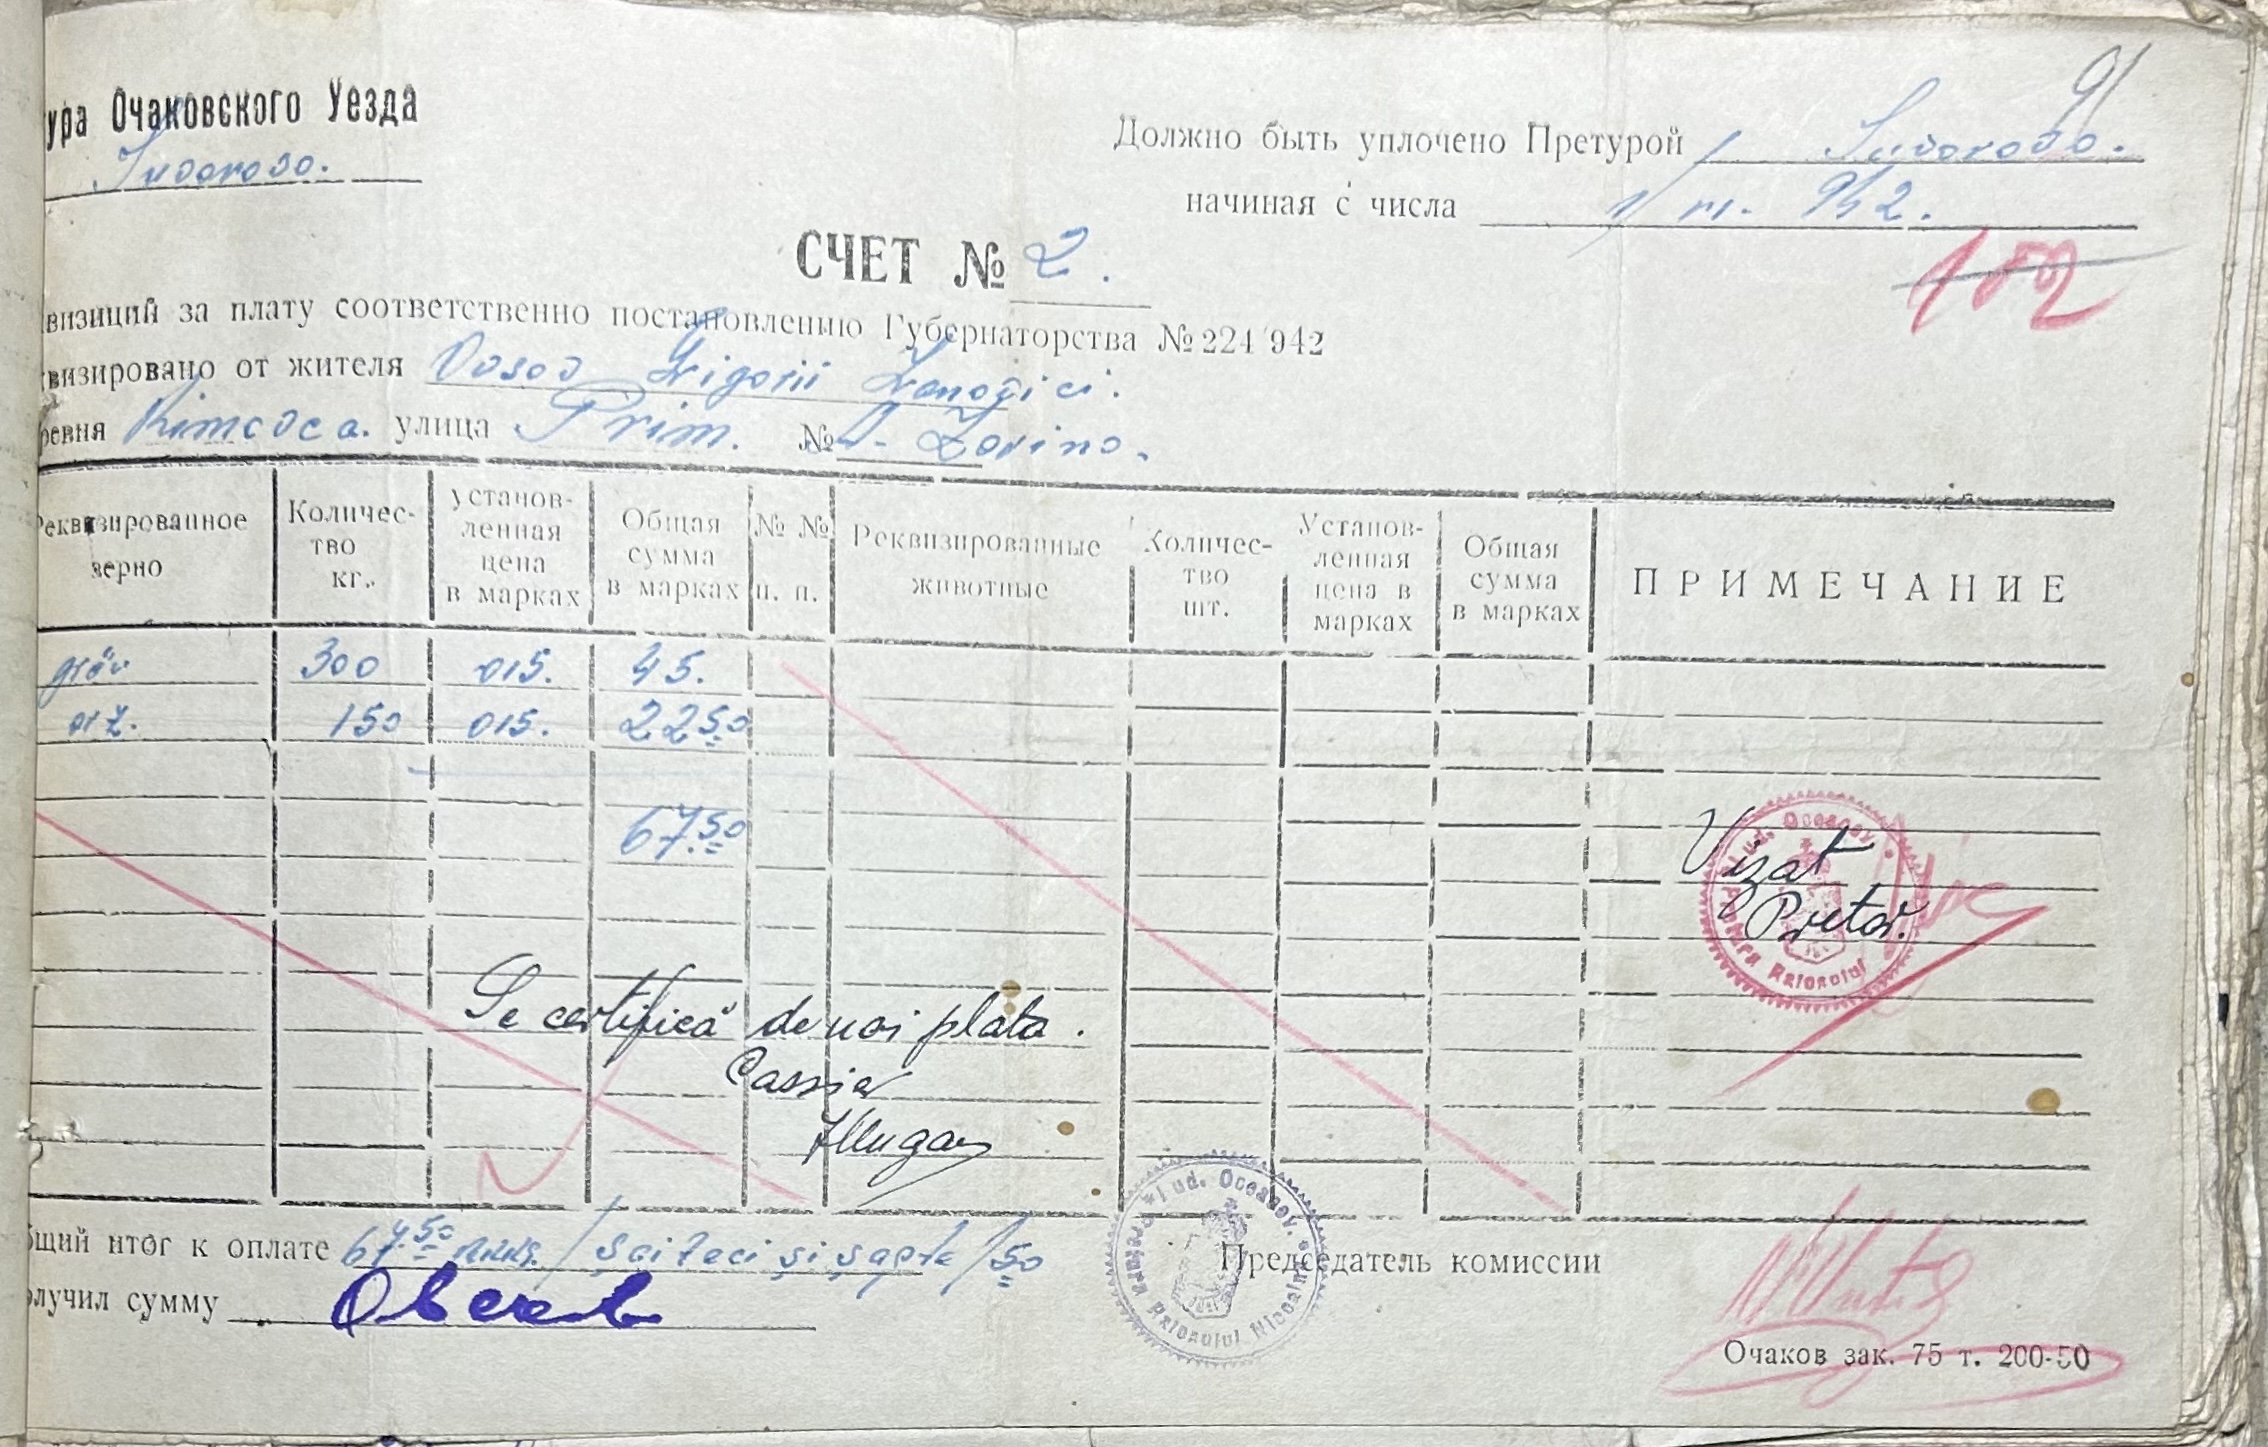 ура Очаковского Уезда
Suvorovo.
91
Должно быть уплочено Претурой Suvorovo.
начиная с числа 942.
152
СЧЕТ № 2.
визиций за плату соответственно постановлению Губернаторства № 224/942
визировано от жителя Grigorii
ревня улица Prim. №
Реквизированное зерно
Количество кг.
установленная цена в марках
Общая сумма в марках
№ № п. п.
Реквизированные животные
Количество шт.
Установленная цена в марках
Общая сумма в марках
ПРИМЕЧАНИЕ
grâu 300 015. 45.
orz. 150 015. 22 50
67.50
Vizat
Pretor.
Jud. Oceacov. Pretura Raionului
Se certifică de noi plata.
Cassier
бщий итог к оплате 67.50 / șaizeci și șapte / 50
Председатель комиссии
Jud. Oceacov. Pretura Raionului
олучил сумму
Очаков зак. 75 т. 200-50